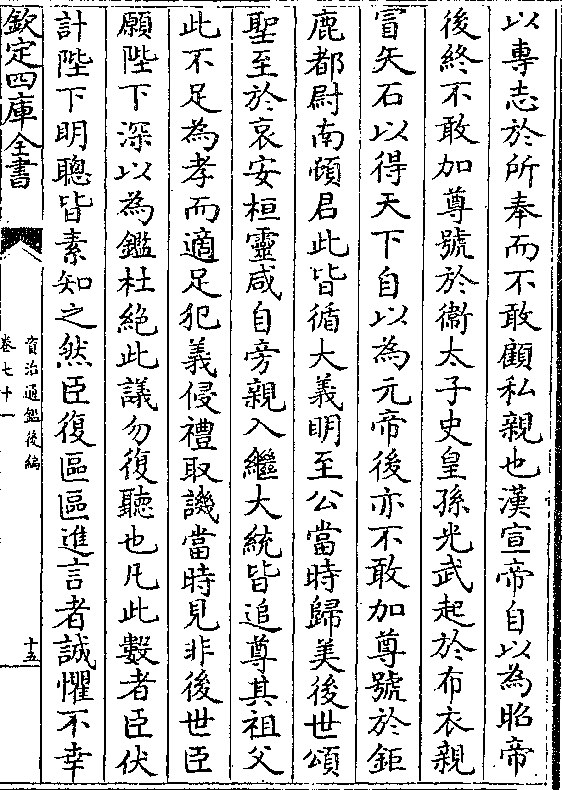 以專志於所奉而不敢顧私親也漢宣帝自以為昭帝
後終不敢加尊號於衞太子史皇孫光武起於布衣親
冒矢石以得天下自以為元帝後亦不敢加尊號於鉅
鹿都尉南頓君此皆循大義明至公當時歸美後世頌
聖至於哀安桓靈咸自旁親入繼大統皆追尊其祖父
此不足為孝而適足犯義侵禮取譏當時見非後世臣
願陛下深以為鑑杜絶此議勿復聽也凡此數者臣伏
計陛下明聰皆素知之然臣復區區進言者誠懼不幸
欽定四庫全書
資治通鑑後編
卷七十一
十五